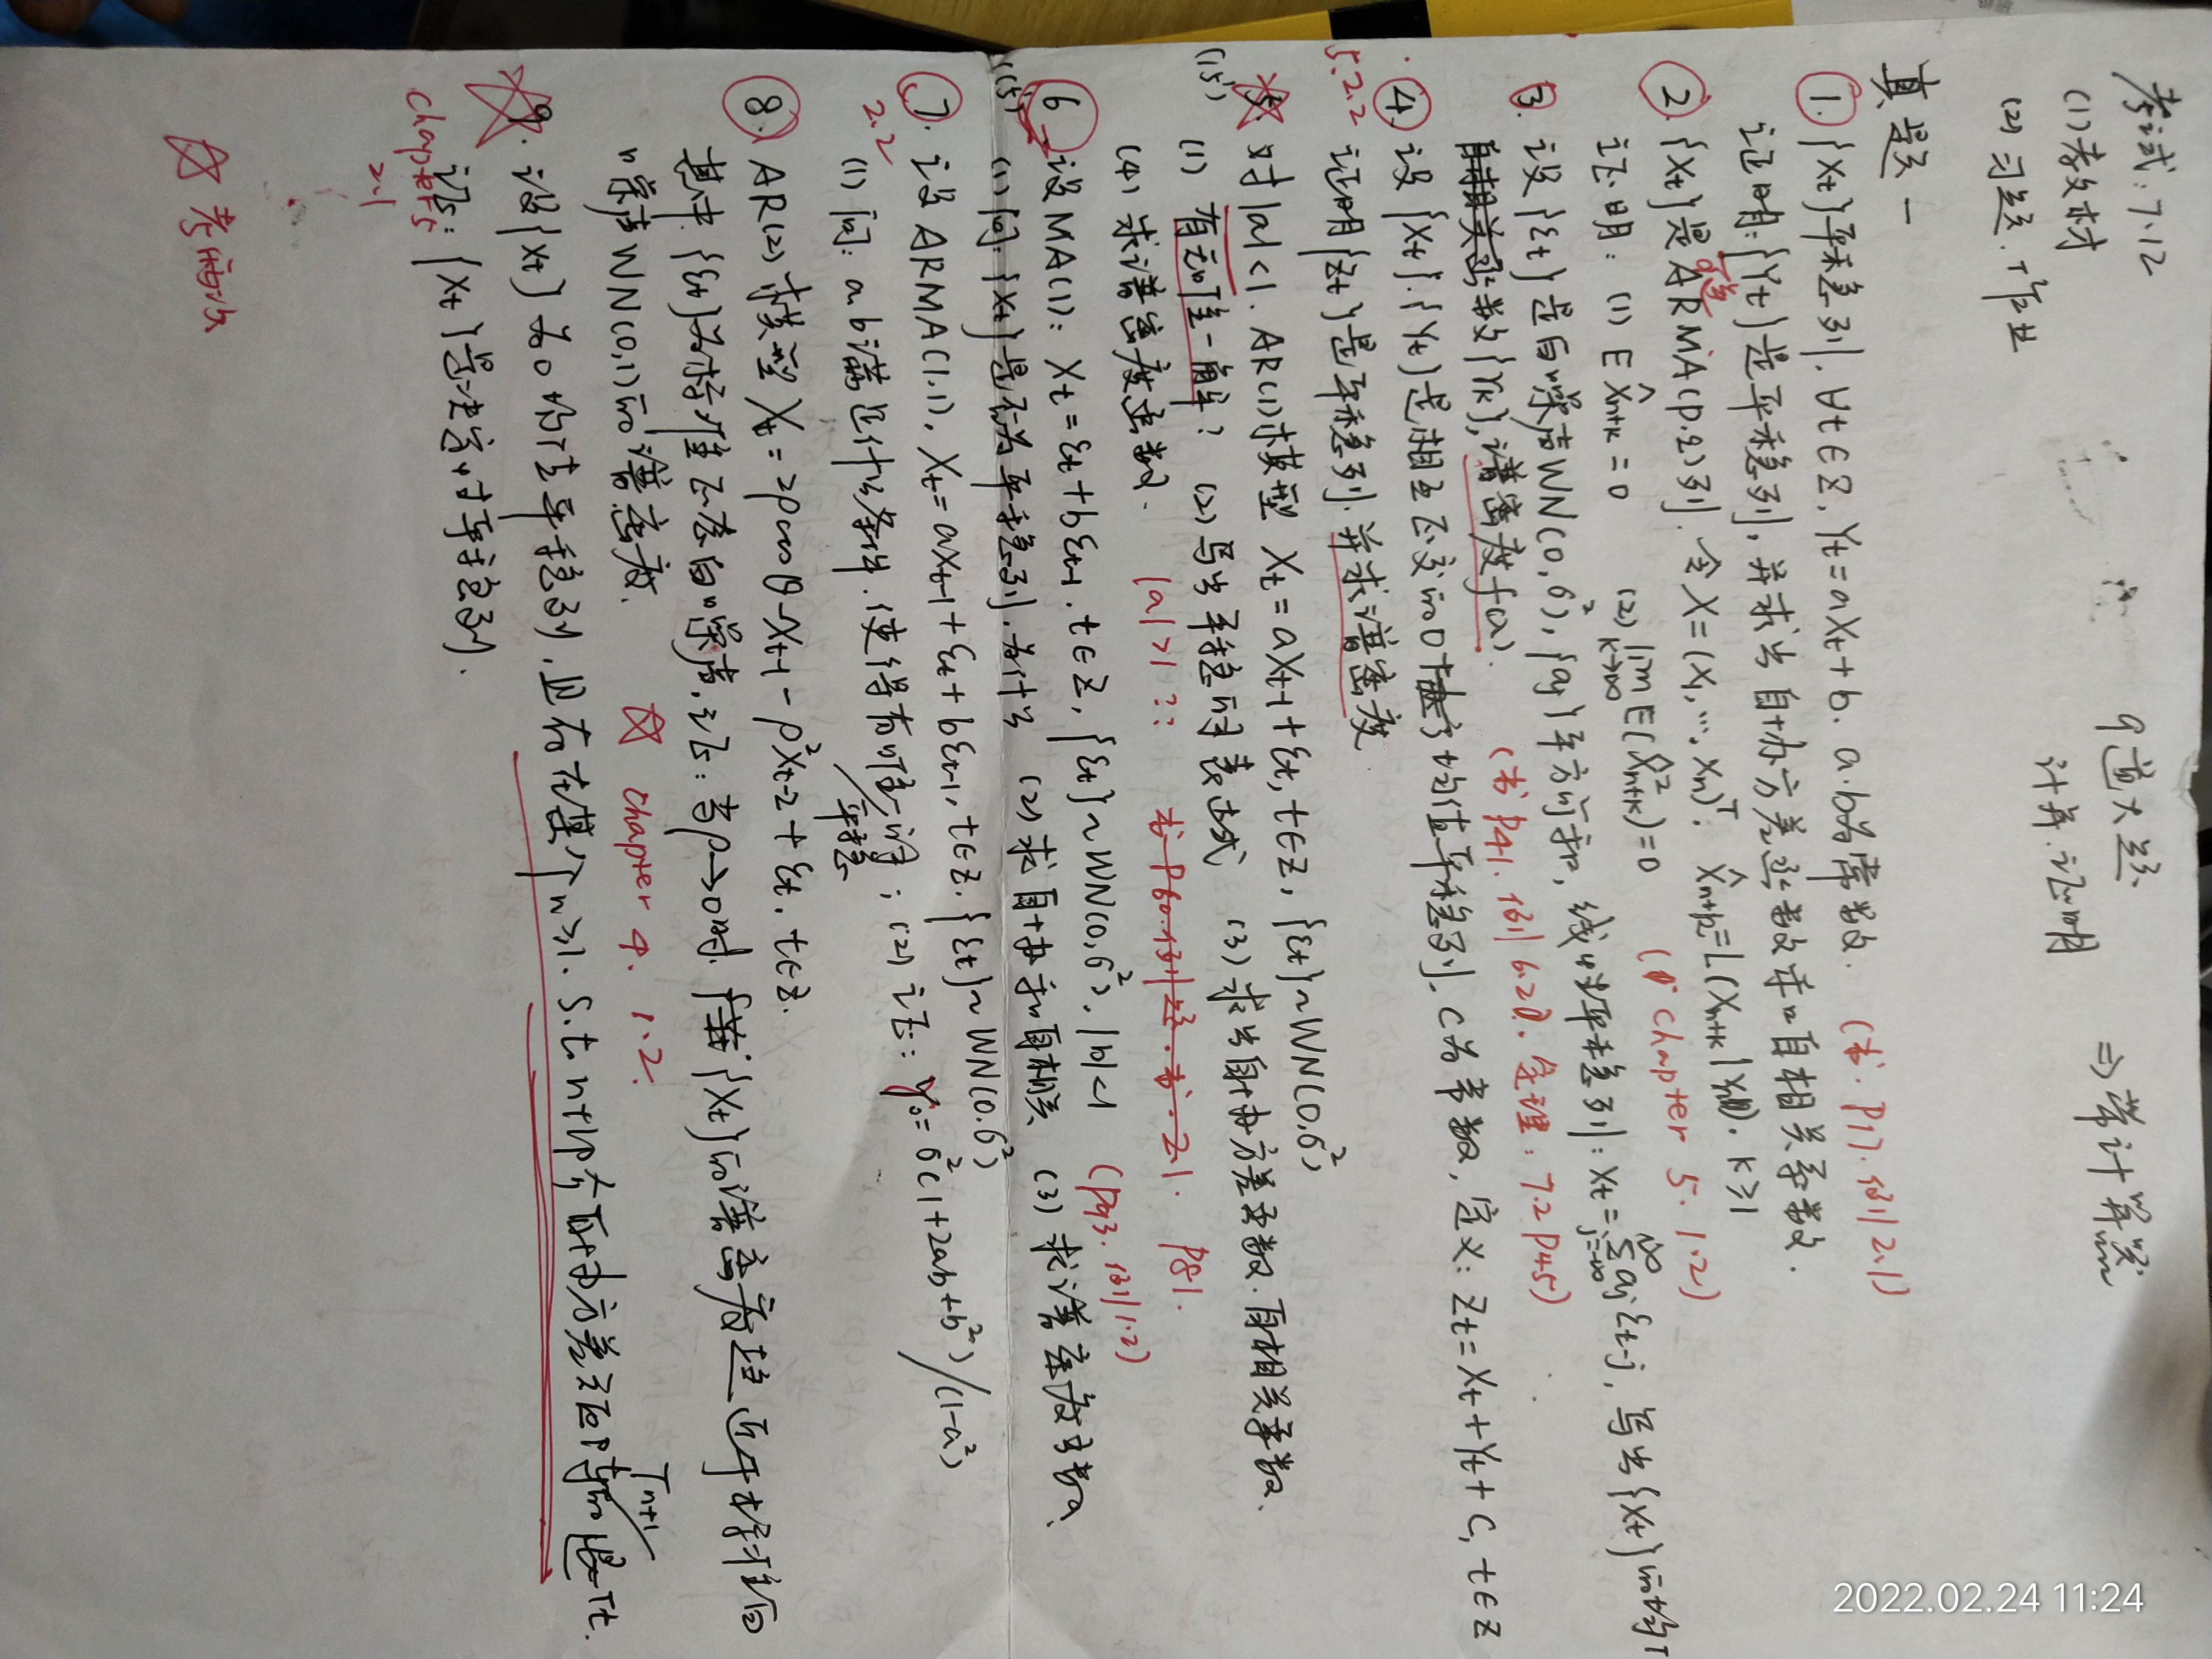 考试：7.12
9道大题 ⇒带计算器
(1)教材
计算.证明
(2)习题.作业
2022.02.24 11:24
真题一
1. {Xt}平稳列.∀t∈Z, Yt=aXt+b. a.b为常数. (书.P17.例2.1)
证明:{Yt}是平稳列,并求出自协方差函数和自相关系数.
可逆
2. {Xt}是ARMA(p.q)列.令X=(X1,…,Xn)ᵀ, X̂n+k=L(Xn+k|X). k≥1
证明：(1) E X̂n+k=0 (2) lim k→∞ E(X̂²n+k)=0 (Chapter 5. 1.2)
3. 设{εt}是白噪声WN(0,σ²),{aj}平方可和,线性平稳列：Xt=∑ j=-∞ ∞ aj εt-j, 写出{Xt}的均
函数{γk},谱密度f(λ). (书P41.例6.2.定理：7.2 P45)
4. 设{Xt}.{Yt}是相互正交的0均值平稳列.C为常数,定义：Zt=Xt+Yt+C, t∈Z
5.2.2 证明{Zt}是平稳列.并求谱密度
5. 对|a|<1. AR(1)模型 Xt=aXt-1+εt, t∈Z, {εt}~WN(0,σ²)
(15) (1) 有无唯一解? (2)写出平稳解表达式 (3)求出自协方差函数.自相关系数.
(4) 求谱密度函数. |a|>1 ?? 书P60.例.书.2.1. P81.
6 设MA(1): Xt=εt+bεt-1.t∈Z, {εt}~WN(0,σ²), |b|<1 (P93.例1.2)
(15) (1)问:{Xt}是否为平稳列.为什么 (2)求自协和自相关 (3)求谱密度函数
7. 设ARMA(1.1), Xt=aXt-1+εt+bεt-1, t∈Z. {εt}~WN(0.σ²)
2.2 (1)问: a.b满足什么条件.使得有唯一解; (2)证: γ0=σ²(1+2ab+b²)/(1-a²)
平稳
8. AR(2)模型 Xt=2ρcosθ Xt-1-ρ²Xt-2+εt, t∈Z.
其中.{εt}为标准正态白噪声.证：当ρ→0时.{Xt}的谱密度趋近于标准白
噪声WN(0,1)的谱密度. ☆ Chapter 4. 1.2.
Γn+1
9. 设{Xt}为0均值平稳列,且存在某个n≥1. s.t. n+1阶自协方差矩阵的退化.
证：{Xt}是决定性平稳列.
Chapter 5
2.1
☆考两次